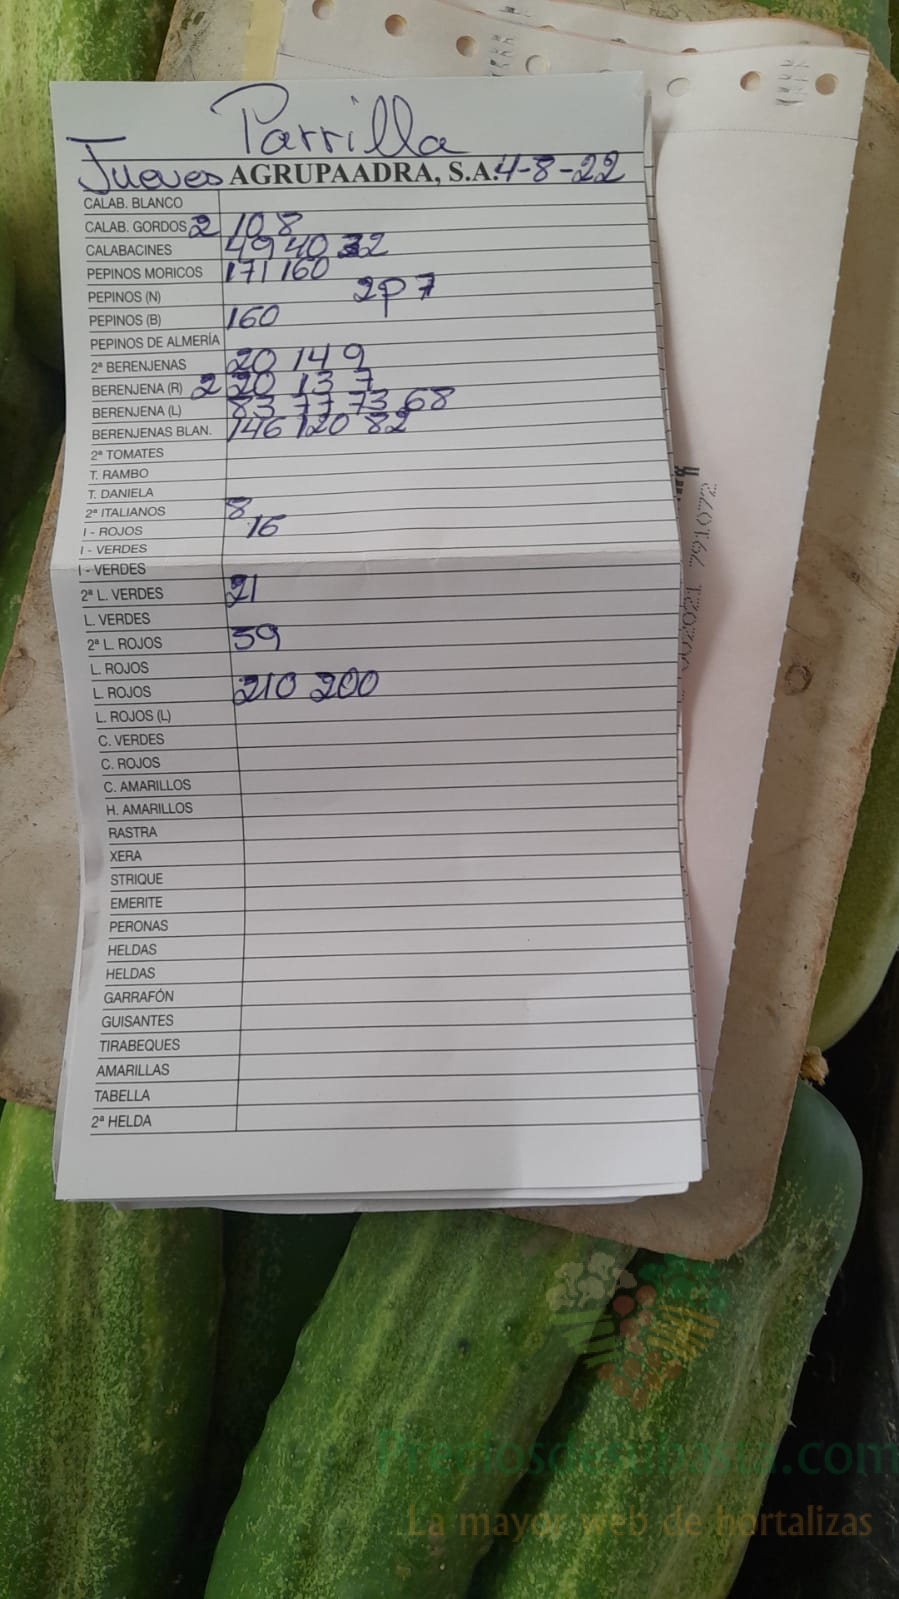 Parrilla
Jueves AGRUPAADRA, S.A. 4-8-22
CALAB. BLANCO
CALAB. GORDOS 2 10 8
CALABACINES 49 40 32
PEPINOS MORICOS 171 160
PEPINOS (N) 2P7
PEPINOS (B) 160
PEPINOS DE ALMERÍA
2ª BERENJENAS 20 14 9
BERENJENA (R) 2 20 13 7
BERENJENA (L) 83 77 73 68
BERENJENAS BLAN. 146 120 82
2ª TOMATES
T. RAMBO
T. DANIELA
2ª ITALIANOS 8
I - ROJOS 16
I - VERDES
I - VERDES
2ª L. VERDES 21
L. VERDES
2ª L. ROJOS 59
L. ROJOS
L. ROJOS 210 200
L. ROJOS (L)
C. VERDES
C. ROJOS
C. AMARILLOS
H. AMARILLOS
RASTRA
XERA
STRIQUE
EMERITE
PERONAS
HELDAS
HELDAS
GARRAFÓN
GUISANTES
TIRABEQUES
AMARILLAS
TABELLA
2ª HELDA
Preciosdesubasta.com
La mayor web de hortalizas